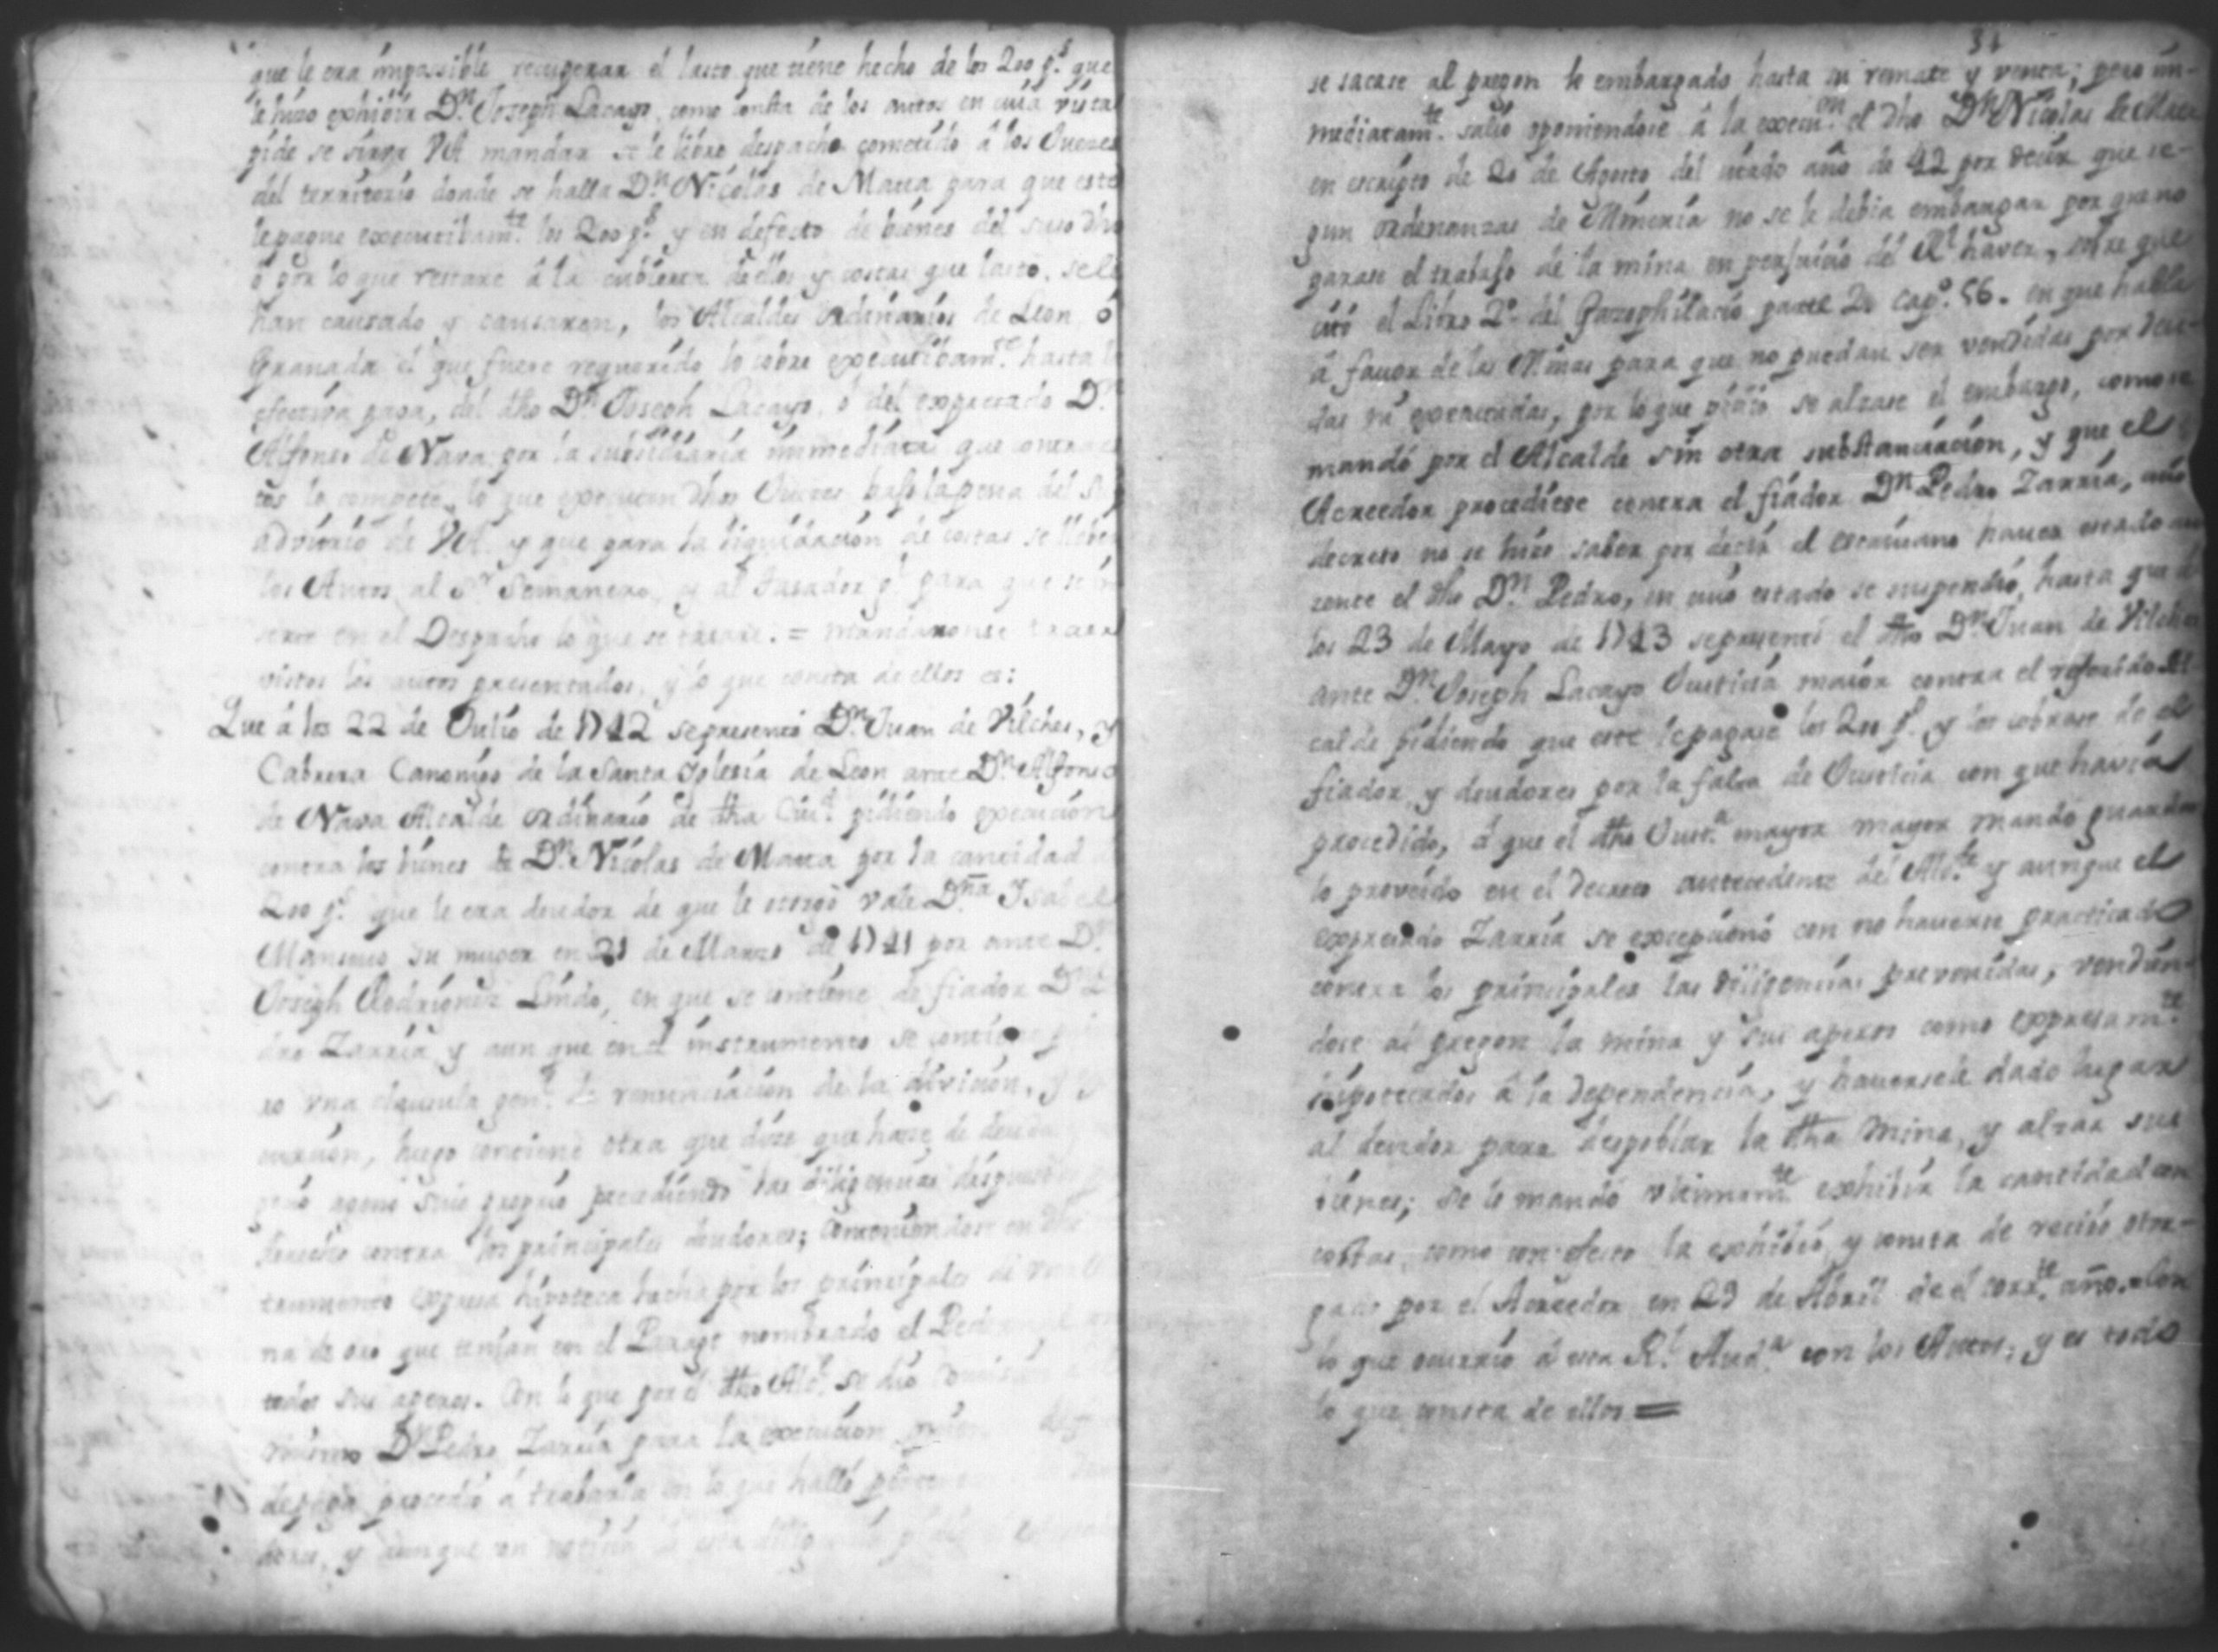 que le era impossible recuperar el lasto que tiene hecho de los 200 p.s que
le hizo exhivir D.n Joseph Lacayo, como consta de los autos en cuia vista
pide se sirva VA mandar se le libre despacho cometido â los Juezes
del territorio donde se halla D.n Nicolas de Matta para que este
le pague executibam.te los 200 p.s y en defecto de bienes del suso dho
ô por lo que restare â la cubierta de ellos y costas que lasto, se le
han causado y causaren, los Alcaldes ordinarios de Leon ó
Granada el que fuere requerido lo cobre executibam.te hasta la
efectiva paga, del dho D.n Joseph Lacayo, ô del expresado D.n
Alfonso de Nava por la subsidiaria immediata que contra es
tos le compete, lo que executen dhos Juezes bajo la pena del
advitrio de VA. y que para la liquidacion de costas se lleben
los Autos al S.r Semanero, y al Tasador g.l para que se in
serte en el Despacho lo que se tasare. = Mandaronse traer
vistos los autos presentados, y lo que consta de ellos es:
Que â los 22 de Julio de 1742 se presentó D.n Juan de Vilches, y
Cabrera Canonigo de la Santa Iglesia de Leon ante D.n Alfonso
de Nava Alcalde ordinario de dha Ciu.d pidiendo execucion
contra los bienes de D.n Nicolas de Matta por la cantidad de
200 p.s que le era deudor de que le otorgó vale D.ña Isabel
su muger en 21 de Marzo de 1741 por ante D.n
Joseph Rodriguez Lindo, en que se contiene de fiador D.n Pe
dro Zarria y aun que en el instrumento se contiene
ro vna clausula gen.l de renunciacion de la divicion, y
cursion, luego contiene otra que dize que haze de deuda
ageno suio propio precediendo las diligencias dispuestas
derecho contra los principales deudores; conteniendose en dho
trumento expresa hipoteca hecha por los principales de vna
na de oro que tenian en el Parage nombrado el
todos sus aperos. Con lo que por el dho Alc.e se dió comision
mismo D.n Pedro Zarria para la execucion
de paga procedió á trabarla en lo que halló
dores, y aunque con noticia de esta
31
se sacase al pregon lo embargado hasta su remate y venta; pero im-
mediatam.te salió oponiendose â la execu.on el dho D.n Nicolas de Matta
en escripto de 20 de Agosto del citado año de 42 por decir que se-
gun ordenanzas de Mineria no se le debia embargar por que no
parase el trabajo de la mina en perjuicio del R.l haver, sobre que
citó el Libro 2.º del Gazophilacio parte 2. Cap.º 56. en que habla
â favor de las Minas para que no puedan ser vendidas por deu-
das ni executadas, por lo que pidió se alzase el embargo, como se
mandó por el Alcalde sin otra substanciacion, y que el
Acreedor procediese contra el fiador D.n Pedro Zarria, cuio
decreto no se hizo saber por decir el escrivano haver estado au
sente el dho D.n Pedro, en cuio estado se suspendió, hasta que â
los 23 de Mayo de 1743 se presentó el dho D.n Juan de Vilches
ante D.n Joseph Lacayo Justicia maior contra el referido Al
calde pidiendo que este le pagase los 200 p.s y los cobrase de el
fiador, y deudores por la falta de Justicia con que havia
procedido, â que el dho Just.a mayor mayor mandó guardar
lo proveido en el decreto antecedente del Alc.de y aunque el
expresado Zarria se excepcionó con no haverse practicado
contra los principales las diligencias prevenidas, vendien-
dose al pregon la mina y sus aperos como expresam.te
hipotecados â la dependencia, y haversele dado lugar
al deudor para despoblar la dha Mina, y alzar sus
bienes; se le mandó vltimam.te exhibir la cantidad con
costas, como con efecto la exhibió, y consta de recibo otor-
gado por el Acreedor en 29 de Abril de el corr.te año. Con
lo que ocurrió â esta R.l Aud.a con los Autos; y es todo
lo que consta de ellos =